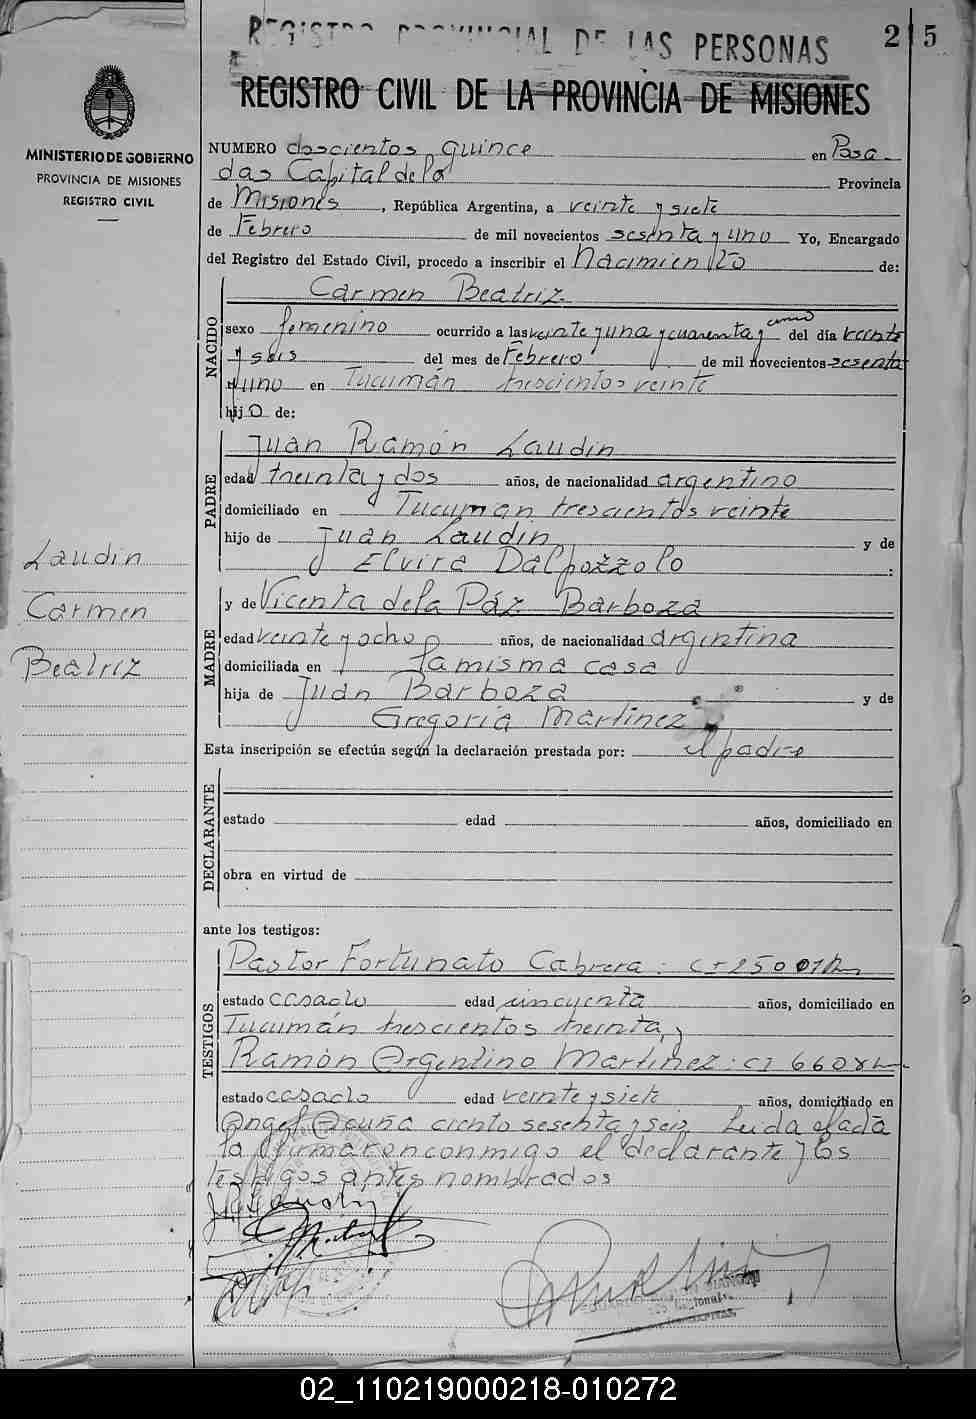 REGISTRO PROVINCIAL DE LAS PERSONAS
215
REGISTRO CIVIL DE LA PROVINCIA DE MISIONES
MINISTERIO DE GOBIERNO
PROVINCIA DE MISIONES
REGISTRO CIVIL
NUMERO doscientos quince en Posa-
das Capital de la Provincia
de Misiones, República Argentina, a veinte y siete
de Febrero de mil novecientos sesenta y uno Yo, Encargado
del Registro del Estado Civil, procedo a inscribir el Nacimiento de:
NACIDO
Carmen Beatriz
sexo femenino ocurrido a las veinte y una y cuarenta y cinco del día veinte
y seis del mes de Febrero de mil novecientos sesenta
y uno en Tucumán trescientos veinte
hij a de:
PADRE
Juan Ramón Laudin
edad treinta y dos años, de nacionalidad argentino
domiciliado en Tucuman trescientos veinte
hijo de Juan Laudin y de
Elvira Dalpozzolo :
MADRE
y de Vicenta de la Páz Barboza
edad veinte y ocho años, de nacionalidad argentina
domiciliada en la misma casa
hija de Juan Barboza y de
Gregoria Martinez
Esta inscripción se efectúa según la declaración prestada por: el padre
DECLARANTE
estado edad años, domiciliado en
obra en virtud de
ante los testigos:
TESTIGOS
Pastor Fortunato Cabrera: CI 25001
estado casado edad cincuenta años, domiciliado en
Tucumán trescientos treinta, y
Ramón Argentino Martinez: CI 6608
estado casado edad veinte y siete años, domiciliado en
Angel Acuña ciento sesenta y seis. Leida el acta
la firmaron conmigo el declarante y los
testigos antes nombrados
Laudin
Carmen
Beatriz
02_110219000218-010272